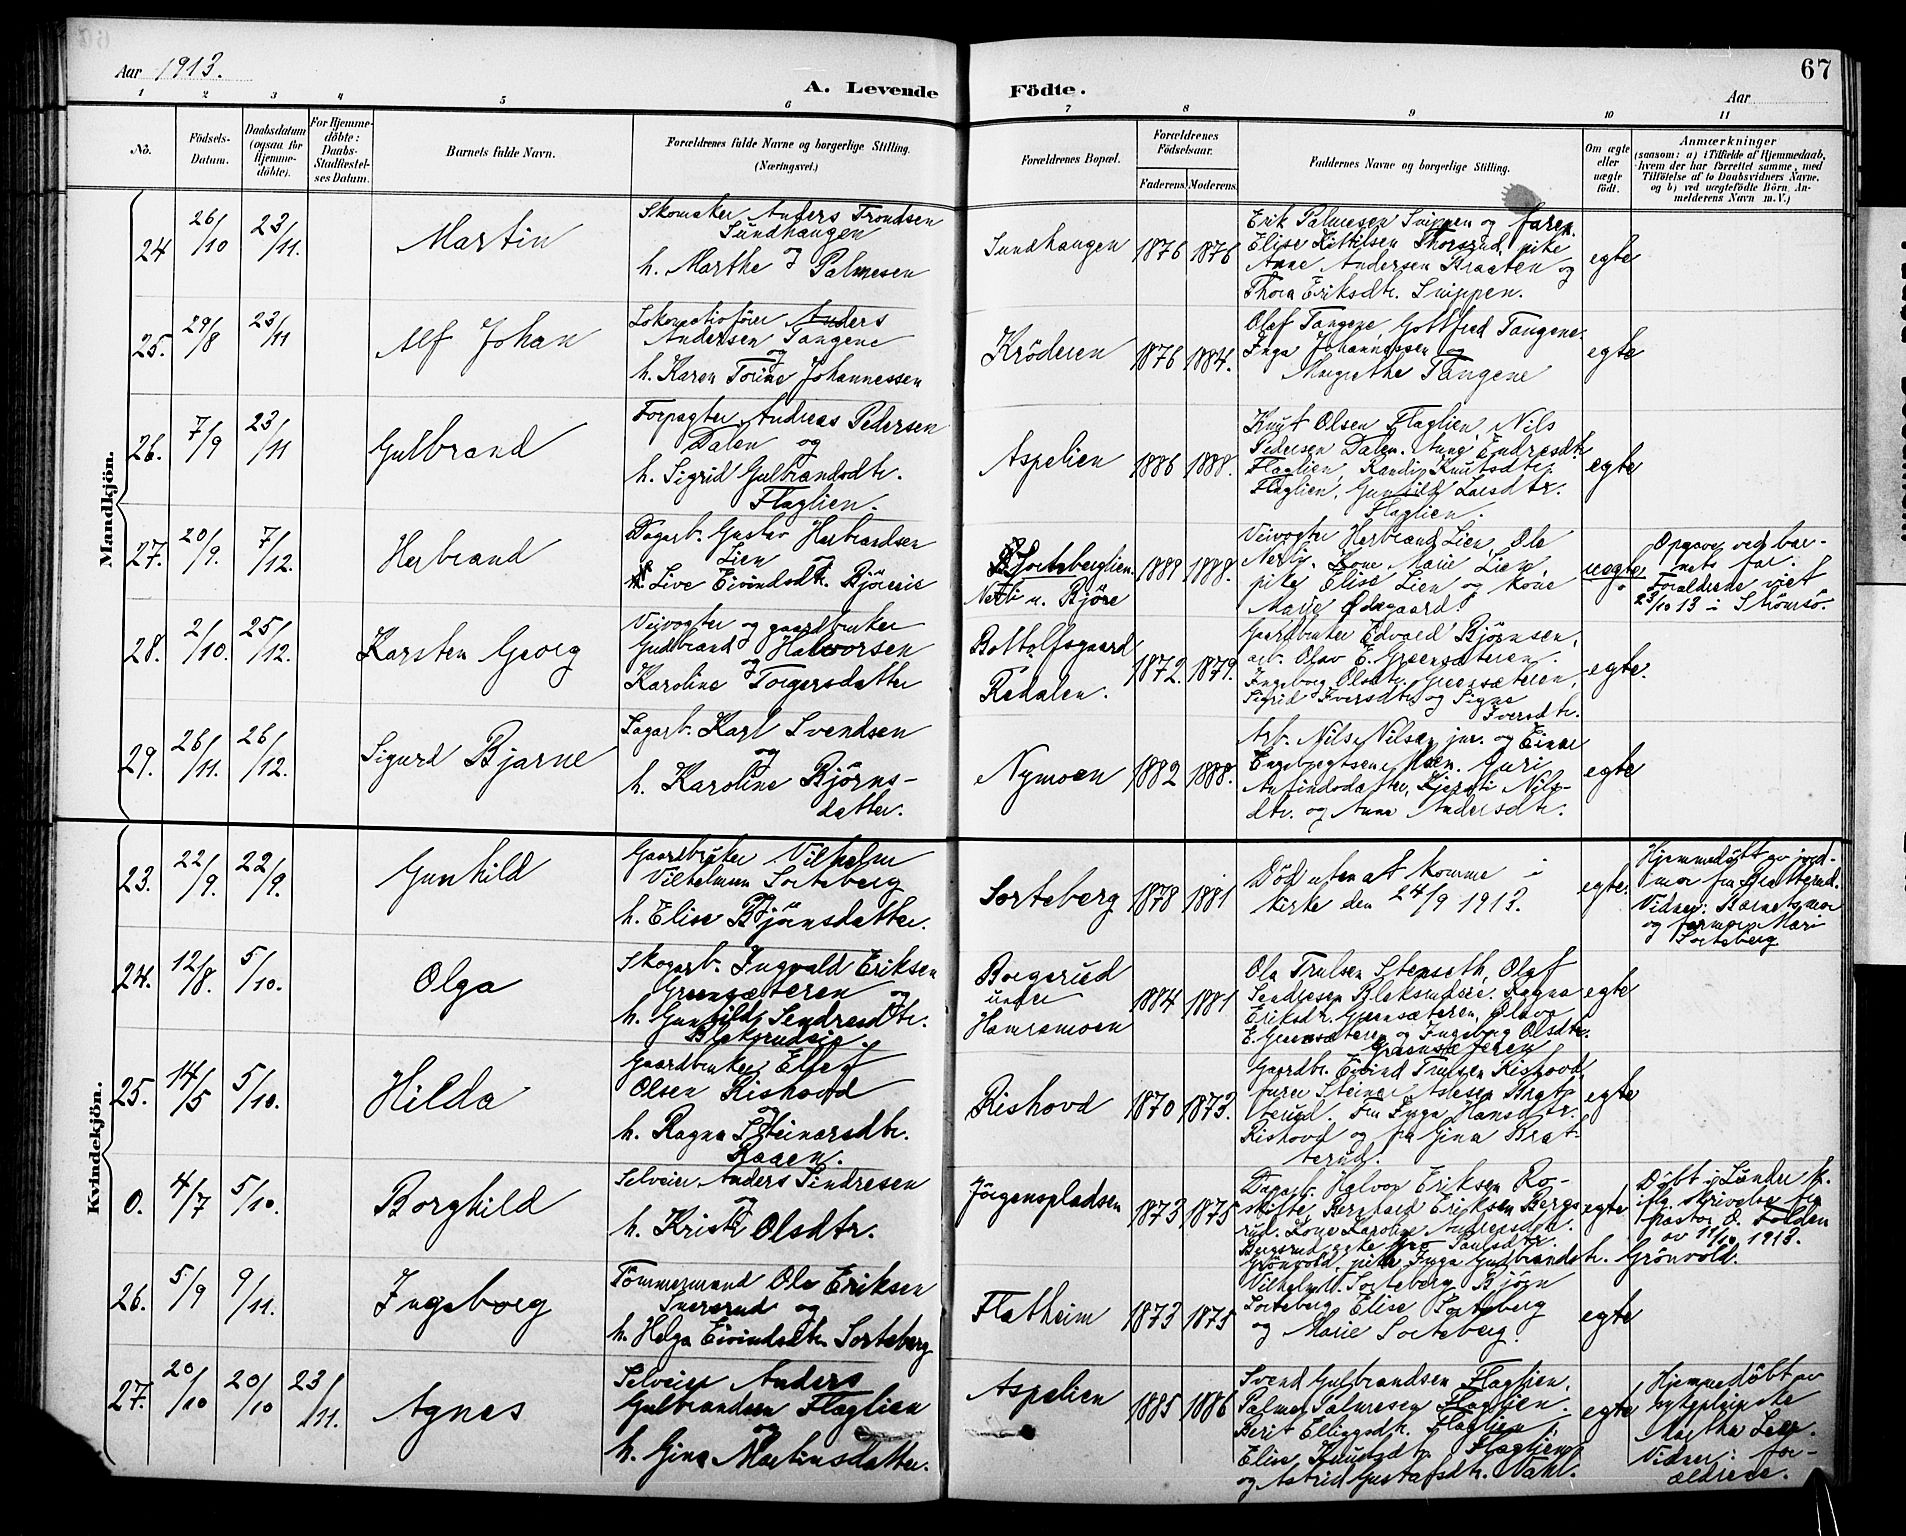 Aar 1913.
A. Levende Födte.
67
Aar
1 2 3 4 5 6 7 8 9 10 11
No.
Födsels-
Datum.
Daabsdatum
(ogsaa for
Hjemme-
döbte).
For Hjemme-
döbte:
Daabs-
Stadfæstel-
ses Datum.
Barnets fulde Navn.
Forældrenes fulde Navne og borgerlige Stilling.
(Næringsvei.)
Forældrenes Bopæl.
Forældrenes
Födselsaar.
Faderens. Moderens.
Faddernes Navne og borgerlige Stilling.
Om ægte
eller
uægte
födt.
Anmærkninger
(saasom: a) i Tilfælde af Hjemmedaab,
hvem der har forrettet samme, med
Tilföielse af to Daabsvidners Navne,
og b) ved uægtefödte Börn, An-
melderens Navn m. V.)
Mandkjön.
24 26/10 23/11. Martin
Skomaker Anders Trondsen
Sundhaugen
og
h. Marthe Palmesen
Sundhaugen 1876 1876
Erik Palmesen Snippen og faren.
Elise Kittilsen Thorsrud, pike
Anne Andersen Braaten og
Thora Eriksdtr. Snippen.
egte
25. 29/8 23/11 Alf Johan
Lokomotivförer Anders
Andersen Tangene
og
h. Karen Torine Johannessen
Kröderen 1876 1884.
Olaf Tangene, Gottfred Tangene
Inga Johannessen og
Margrethe Tangene
egte
26. 7/9 23/11 Gulbrand
Forpagter Andreas Pedersen
Dalen og
h. Sigrid Gulbrandsdtr.
Flaglien.
Aspelien 1886 1888.
Knut Olsen Flaglien, Nils
Pedersen Dalen. Anne Endresdtr.
Flaglien, Randi Knutsdtr.
Flaglien, Gunhild Larsdtr.
Flaglien.
egte
27. 20/9. 7/12. Herbrand
Dagarb. Gustav Herbrandsen
Lien og
Live Eivindsdtr. Björeeie
Sorteberglien.
Nerli u. Björe
1889 1888.
Veivogter Herbrand Lien, Ole
Nerli. Kone Marie Lien,
pike Elise Lien og kone
Marie Ødegaard
uegte
Opgave ved bar-
nets far.
Forældrene viet
23/10 13 i Strömsö.
28. 2/10. 25/12. Karsten Georg
Veivogter og gaardbruker
Gudbrand Halvorsen
og
Karoline Torgersdatter
Bottolfsgaard
Redalen.
1872. 1879.
Gaardbruker Edvard Bjørnsen,
arb. Olav E. Grensæteren.
Ingeborg Olsdtr. Grensæteren,
Sigrid Iversdtr. og Signe
Iversdtr.
egte.
29. 26/11. 26/12. Sigurd Bjarne
Sagarb. Karl Svendsen
og
h. Karoline Bjørns-
datter.
Nymoen 1882 1888.
Arb. Nils Nilsen jur. og Einar
Engebregtsen Moen. Guri
Anfindsdatter, Kjersti Nils-
dtr. og Anna Andersdtr.
egte
Kvindekjön.
23. 22/9. 22/9. Gunhild
Gaardbruker Vilhelm
Vilhelmsen Sorteberg
h. Elise Bjönsdatter.
Sorteberg 1878 1881
Död uten at komme i
kirke den 24/9 1913.
egte.
Hjemmedöbt av jord-
mor fru Bratterud.
Vidner: Barnets mor
og farmor Mari
Sorteberg
24. 12/8. 5/10. Olga
Skogarb. Ingvald Eriksen
Grensæteren og
h. Gunhild Sendresdtr.
Bleksrudeie.
Borgerud
under
Hamremoen
1884 1881
Ola Trulsen Stenseth, Olaf
Sendresen Bleksrudeie. Ragna
Eriksdtr. Grensæteren, Olava
E. Grensæteren og Ingeborg Olsdtr.
Grensæteren
egte
25. 14/5 5/10. Hilda
Gaardbruker Ellef
Olsen Rishovd
og
h. Ragna Steinarsdtr.
Raaen.
Rishovd 1870 1873.
Gaardbr. Eivind Trulsen Rishovd,
furer Steinar Aslesen Brat-
terud. Fru Inga Hansdtr.
Rishovd og fru Gina Brat-
terud.
egte
0. 4/7 5/10. Borghild
Selveier Anders Sindresen
og
h. Kristi Olsdtr.
Jörgenspladsen 1873 1875
Dagarb. Halvor Eriksen Ro-
skifte, Bernhard Eriksen Bergs-
rud. Kone Karoline Andersdtr.
Bergsrud, pike Gro Paulsdtr.
Grönvold, pike Inga Gulbrandsdtr. Grönvold.
egte
Döbt i Lunder k.
iflg. skrivelse fra
pastor O. Folden
av 11/10 1913.
26. 5/9 9/11. Ingeborg
Tömmermand Ole Eriksen
Sversrud og
h. Helga Eivindsdtr. Sorteberg
Flatheim 1873 1875
Vilhelm V. Sorteberg, Bjørn
Sorteberg, Elise Sorteberg
og Marie Sorteberg.
egte
27. 20/10 20/10 23/11. Agnes
Selveier Anders
Gulbrandsen Flaglien
og
h. Gina Martinsdatter.
Aspelien 1885 1886
Svend Gulbrandsen Flaglien.
Palmer Palmesen Flaglien.
Berit Ellingsdtr. Flaglien,
Elise Knutsdtr. Flaglien
og Astrid Gustafsdtr. Vahl.
egte
Hjemmedöbt av
sykepleierske
Martha Lær.
Vidner: for-
ældrene.